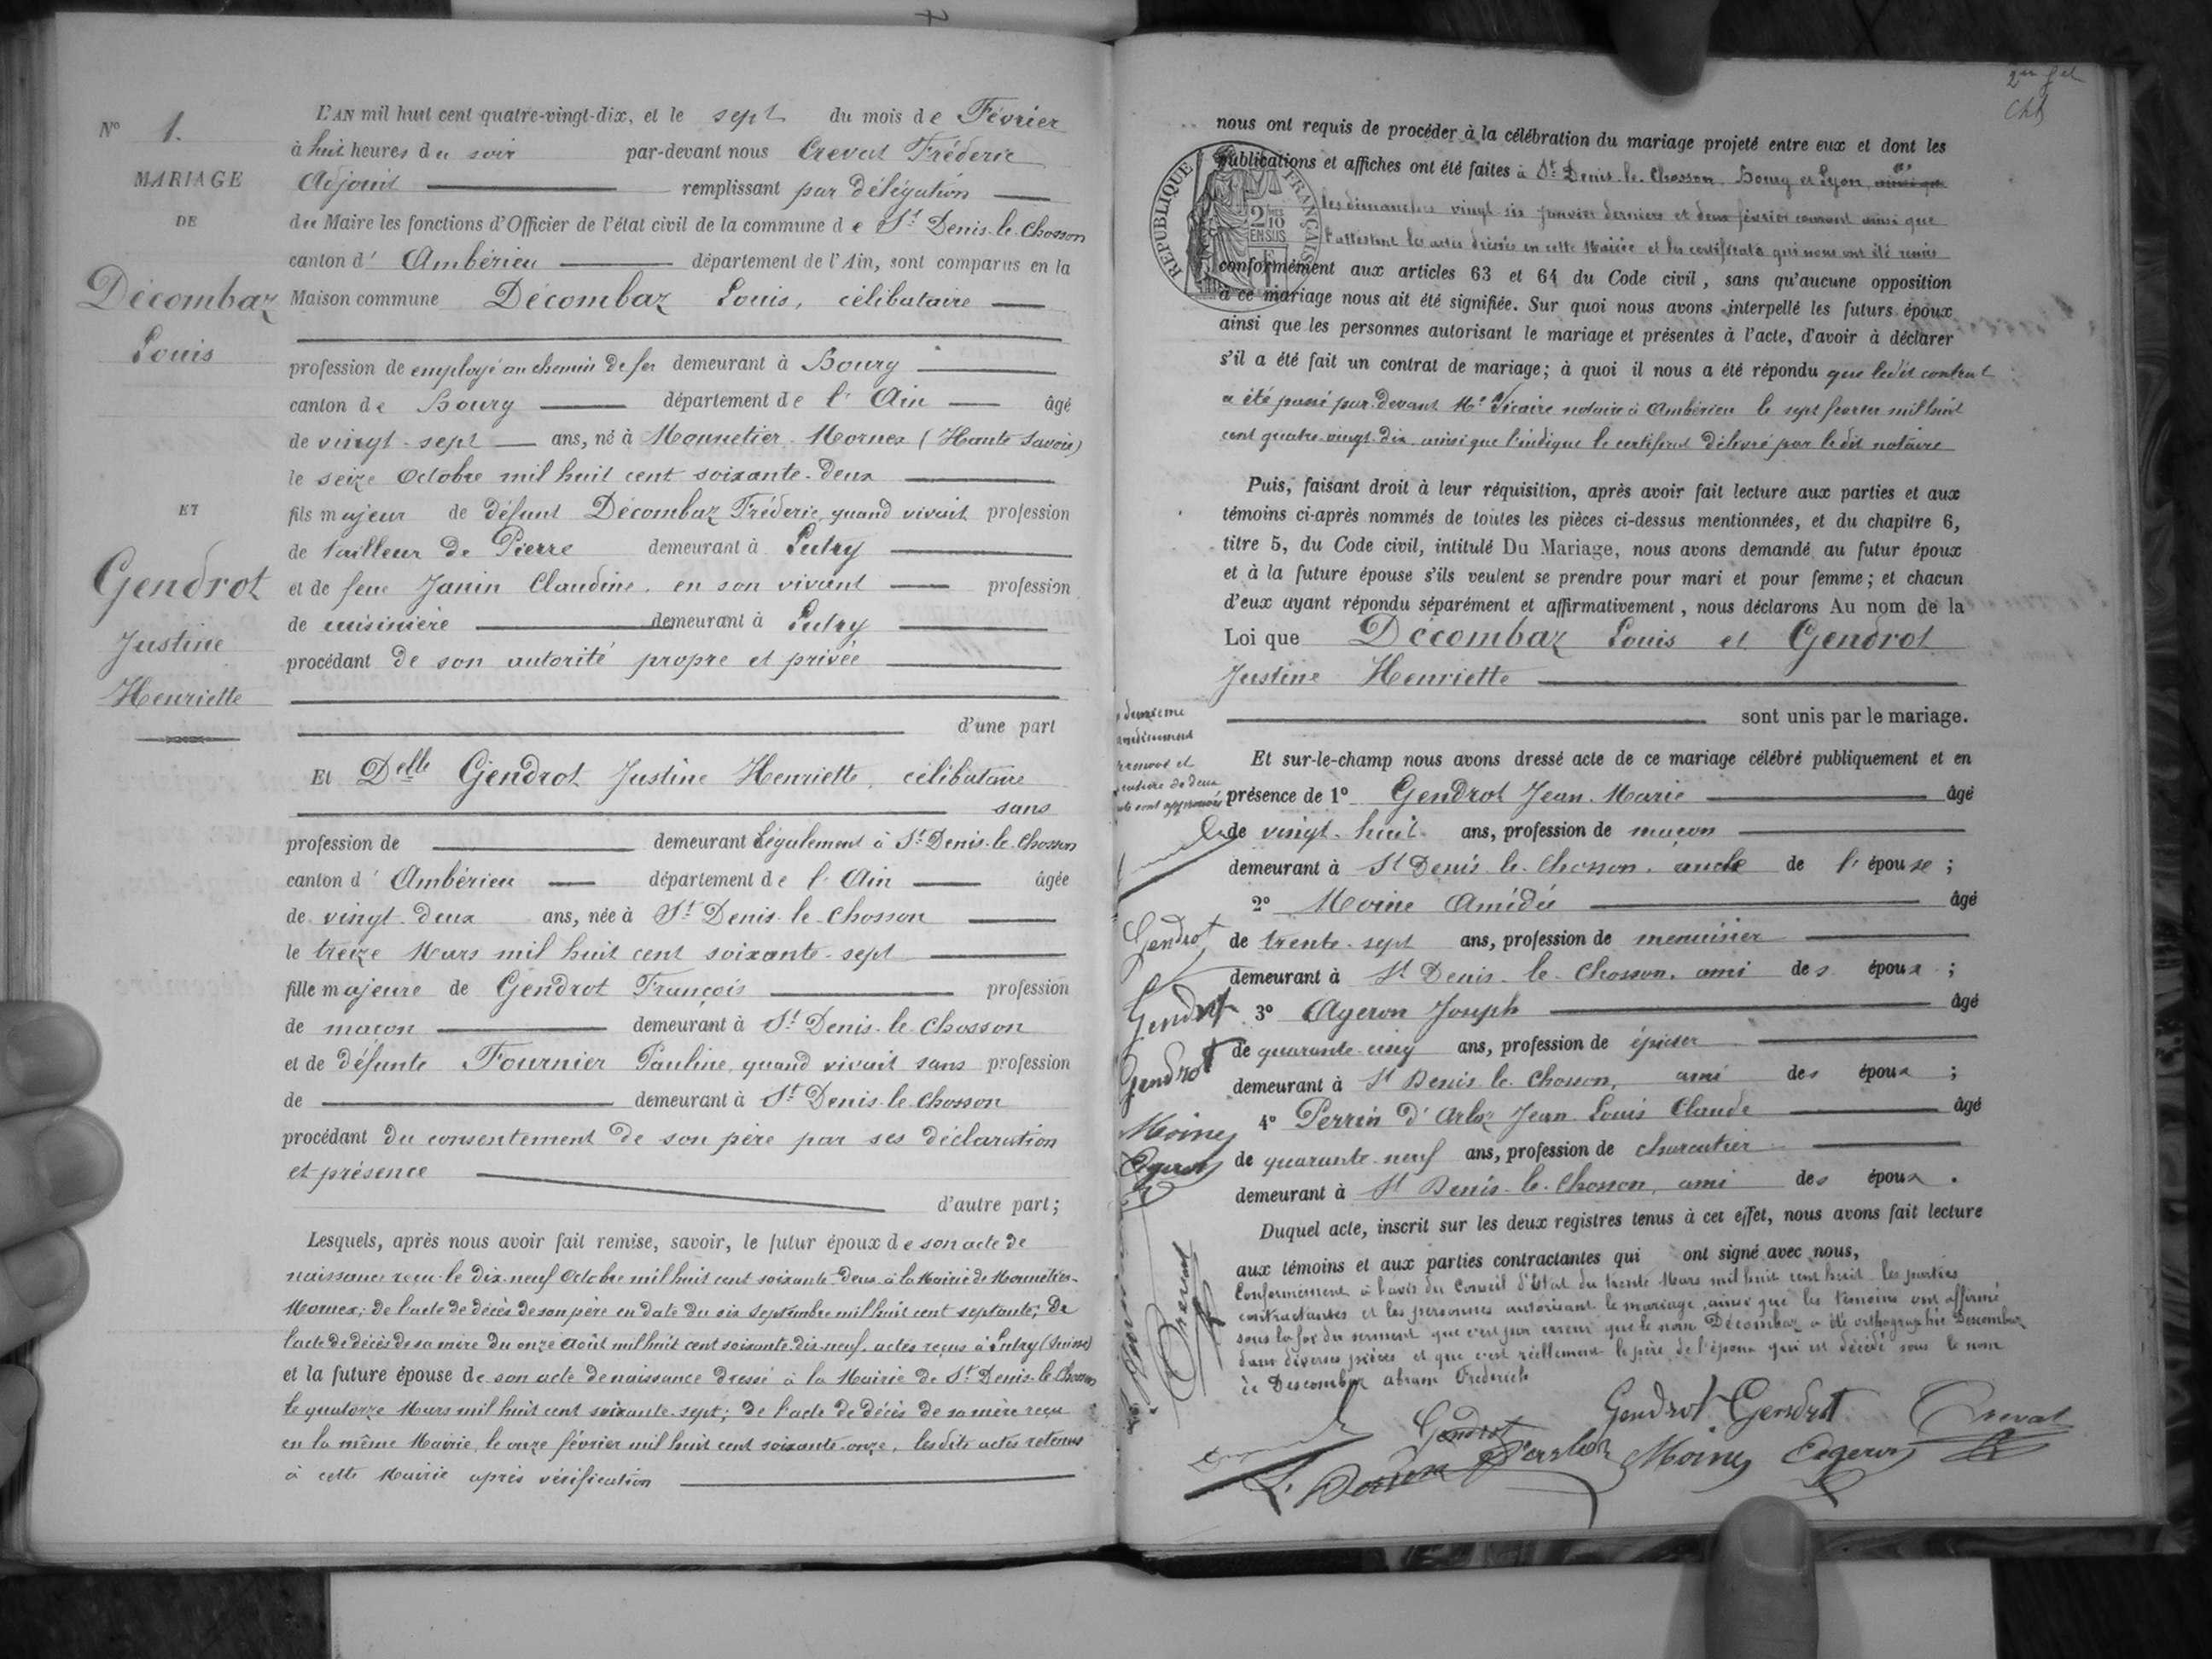 N° 1.
MARIAGE
DE
Décombaz
Louis
ET
Gendrot
Justine
Henriette
L'AN mil huit cent quatre-vingt-dix, et le sept du mois de Février
à huit heures du soir par-devant nous Crevat Fréderic
Adjoint remplissant par délégation
du Maire les fonctions d'Officier de l'état civil de la commune de St Denis-le-Chosson
canton d' Ambérieu département de l'Ain, sont comparus en la
Maison commune Décombaz Louis, célibataire
profession de employé au chemin de fer demeurant à Bourg
canton de Bourg département de l' Ain âgé
de vingt-sept ans, né à Monnetier-Mornex (Haute Savoie)
le seize Octobre mil huit cent soixante-deux
fils majeur de défunt Décombaz Fréderic, quand vivait profession
de tailleur de Pierre demeurant à Lutry
et de feue Janin Claudine, en son vivant profession
de cuisinière demeurant à Lutry
procédant de son autorité propre et privée
d'une part
Et Delle Gendrot Justine Henriette, célibataire
sans
profession de demeurant légalement à St Denis-le-Chosson
canton d' Ambérieu département de l' Ain âgée
de vingt-deux ans, née à St Denis-le-Chosson
le treize Mars mil huit cent soixante-sept
fille majeure de Gendrot François profession
de maçon demeurant à St Denis-le-Chosson
et de défunte Fournier Pauline, quand vivait sans profession
de demeurant à St Denis-le-Chosson
procédant du consentement de son père par ses déclaration
et présence
d'autre part;
Lesquels, après nous avoir fait remise, savoir, le futur époux de son acte de
naissance reçu le dix-neuf Octobre mil huit cent soixante-deux à la Mairie de Monnetier-
Mornex; de l'acte de décès de son père en date du six Septembre mil huit cent septante; de
l'acte de décès de sa mère du onze Août mil huit cent soixante-dix-neuf, actes reçus à Lutry (Suisse)
et la future épouse de son acte de naissance dressé à la Mairie de St Denis-le-Chosson
le quatorze Mars mil huit cent soixante-sept; de l'acte de décès de sa mère reçu
en la même Mairie, le onze février mil huit cent soixante-onze, lesdits actes retenus
à cette Mairie après vérification
nous ont requis de procéder à la célébration du mariage projeté entre eux et dont les
publications et affiches ont été faites à St Denis-le-Chosson, Bourg et Lyon, ainsi que
les dimanches vingt-six janvier derniers et deux février courant ainsi que
l'attestent les actes dressés en cette Mairie et les certificats qui nous ont été remis
conformément aux articles 63 et 64 du Code civil, sans qu'aucune opposition
à ce mariage nous ait été signifiée. Sur quoi nous avons interpellé les futurs époux
ainsi que les personnes autorisant le mariage et présentes à l'acte, d'avoir à déclarer
s'il a été fait un contrat de mariage; à quoi il nous a été répondu que ledit contrat
a été passé par devant Me Vicaire notaire à Ambérieu le sept février mil huit
cent quatre-vingt-dix ainsi que l'indique le certificat délivré par le dit notaire
RÉPUBLIQUE FRANÇAISE
2/10
EN SUS
Puis, faisant droit à leur réquisition, après avoir fait lecture aux parties et aux
témoins ci-après nommés de toutes les pièces ci-dessus mentionnées, et du chapitre 6,
titre 5, du Code civil, intitulé Du Mariage, nous avons demandé au futur époux
et à la future épouse s'ils veulent se prendre pour mari et pour femme; et chacun
d'eux ayant répondu séparément et affirmativement, nous déclarons Au nom de la
Loi que Décombaz Louis et Gendrot
Justine Henriette
sont unis par le mariage.
Et sur-le-champ nous avons dressé acte de ce mariage célébré publiquement et en
présence de 1° Gendrot Jean-Marie âgé
de vingt-huit ans, profession de maçon
demeurant à St Denis-le-Chosson, oncle de l' épouse;
2° Moine Amédée âgé
de trente-sept ans, profession de menuisier
demeurant à St Denis-le-Chosson, ami des époux;
3° Ageron Joseph âgé
de quarante-cinq ans, profession de épicier
demeurant à St Denis-le-Chosson, ami des époux;
4° Perrin d'Arloz Jean Louis Claude âgé
de quarante-neuf ans, profession de charcutier
demeurant à St Denis-le-Chosson, ami des époux.
Duquel acte, inscrit sur les deux registres tenus à cet effet, nous avons fait lecture
aux témoins et aux parties contractantes qui ont signé avec nous,
Conformément à l'avis du Conseil d'Etat du trente Mars mil huit cent huit les parties
contractantes et les personnes autorisant le mariage, ainsi que les témoins ont affirmé
sous la foi du serment que c'est par erreur que le nom Décombaz a été orthographié Descombaz
dans diverses pièces et que c'est réellement le père de l'époux qui est décédé sous le nom
de Descombaz Abram Frederich
Gendrot
Gendrot
Gendrot
Moine
Ageron
Crevat
Gendrot Gendrot Gendrot Crevat
Moine Ageron